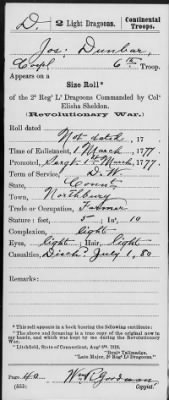 D. | 2 Light Dragoons. | Continental Troops.
Jos: Dunbar,
Corpl 6th Troop.
Appears on a
Size Roll*
of the 2d Regt Lt Dragoons Commanded by Colo
Elisha Sheldon.
(Revolutionary War.)
Roll dated
Not dated, 17 .
Time of Enlistment, 1 March, 1777.
Promoted, Sergt 1st March, 1777.
Term of Service, D. W.
State, Connt.
Town, Northbury
Trade or Occupation, Farmer
Stature: feet, 5 In's, 10
Complexion, light
Eyes, light; Hair, light
Casualties, Disch'd July 1, 80
Remarks:
*This roll appears in a book bearing the following certificate:
"The above and foregoing is a true copy of the original now in my hands, and which was kept by me during the Revolutionary War.
"Litchfield, State of Connecticut, Augt 8th, 1828.
"Benjn Tallmadge,
"Late Major, 2d Regt Lt Dragoons."
Page 40 W. A. Goodman
(553) Copyist.